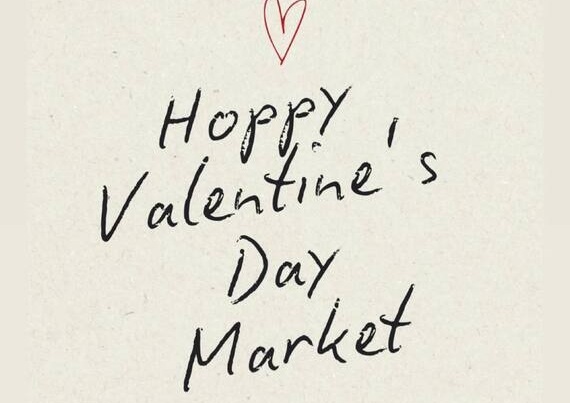 Hoppy
Valentine's
Day
Market